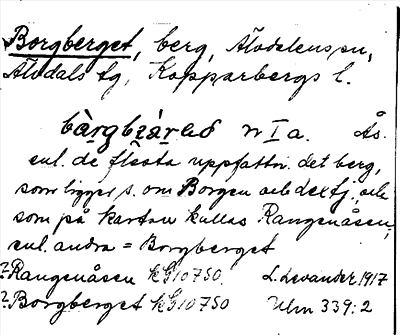 Borgberget, berg, Älvdalens sn,
Älvdals tg, Kopparbergs l.
bàrgbɛ̀rəð n I a. Ås.
enl. de flesta uppfattn. det berg,
som ligger s. om Borgen och dess fj., och
som på kartan kallas Rangenåsen,
enl. andra = Borgberget
?Rangenåsen kG10750. L. Levander 1917
?Borgberget kG10750 Ulm 339:2